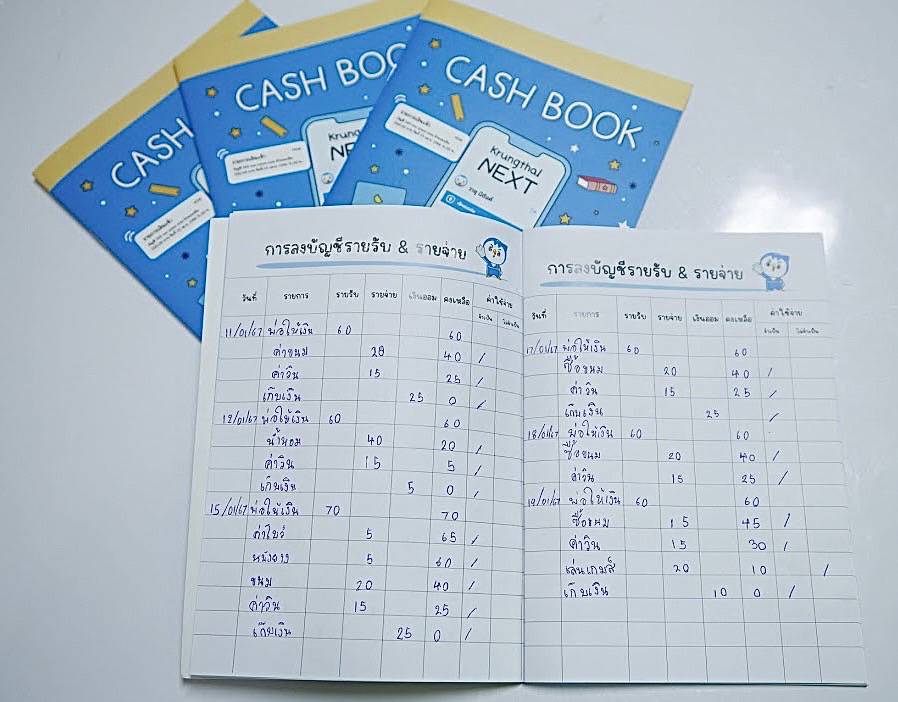 CASH
CASH BOO
Krungthai
NEXT
CASH BOOK
Krungthai
NEXT
การลงบัญชีรายรับ & รายจ่าย
วันที่ รายการ รายรับ รายจ่าย เงินออม คงเหลือ ค่าใช้จ่าย
จำเป็น ไม่จำเป็น
11/01/67 พ่อให้เงิน 60 60
ค่าขนม 20 40 /
ค่าวิน 15 25 /
เก็บเงิน 25 0 /
12/01/67 พ่อให้เงิน 60 60
น้ำหอม 40 20 /
ค่าวิน 15 5 /
เก็บเงิน 5 0 /
15/01/67 พ่อให้เงิน 70 70
5 65 /
หนังยาง 5 60 /
ขนม 20 40 /
ค่าวิน 15 25 /
เก็บเงิน 25 0 /
การลงบัญชีรายรับ & รายจ่าย
วันที่ รายการ รายรับ รายจ่าย เงินออม คงเหลือ ค่าใช้จ่าย
จำเป็น ไม่จำเป็น
17/01/67 พ่อให้เงิน 60 60
ซื้อขนม 20 40 /
ค่าวิน 15 25 /
เก็บเงิน 25 /
18/01/67 พ่อให้เงิน 60 60
ซื้อขนม 20 40 /
ค่าวิน 15 25 /
19/01/67 พ่อให้เงิน 60 60
ซื้อขนม 15 45 /
ค่าวิน 15 30 /
เล่นเกมส์ 20 10 /
เก็บเงิน 10 0 /